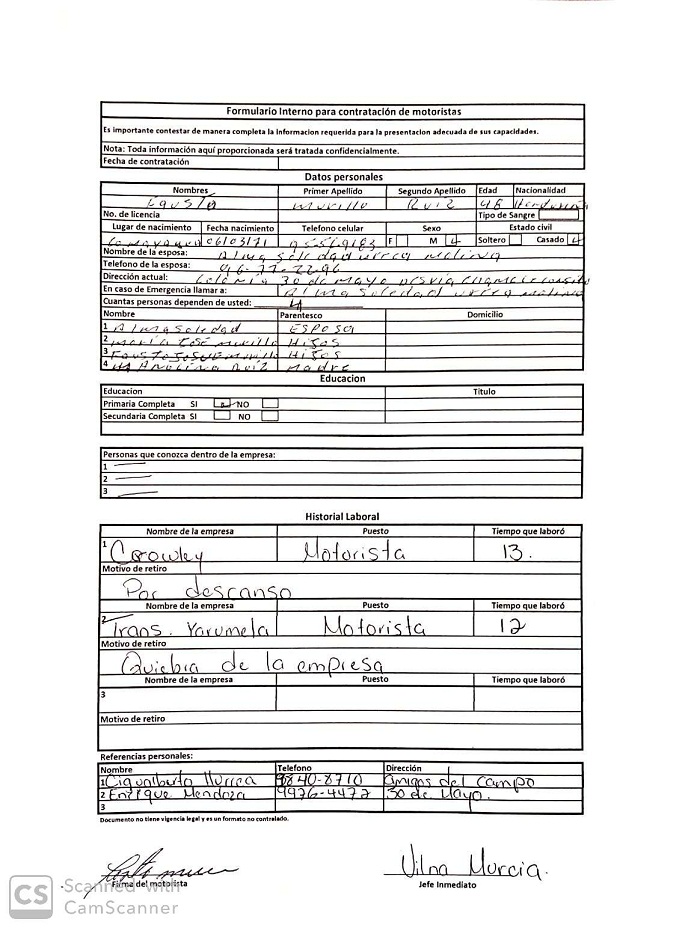 Formulario Interno para contratación de motoristas
Es importante contestar de manera completa la informacion requerida para la presentacion adecuada de sus capacidades.
Nota: Toda información aquí proporcionada será tratada confidencialmente.
Fecha de contratación
Datos personales
Nombres Primer Apellido Segundo Apellido Edad Nacionalidad
Fausto Murillo Ruiz 48
No. de licencia Tipo de Sangre
Lugar de nacimiento Fecha nacimiento Telefono celular Sexo Estado civil
Comayagua 06/03/71 F M Soltero Casado
Nombre de la esposa: Alma Soledad urrea molina
Telefono de la esposa: 96-77-22-96
Dirección actual: Colonia 30 de mayo
En caso de Emergencia llamar a: Alma Soledad urrea molina
Cuantas personas dependen de usted: 4
Nombre Parentesco Domicilio
1 Alma Soledad Esposa
2 María José murillo Hijos
3 Fausto Josue murillo Hijos
4 Ruiz Madre
Educacion
Educacion Título
Primaria Completa SI NO
Secundaria Completa SI NO
Personas que conozca dentro de la empresa:
1
2
3
Historial Laboral
Nombre de la empresa Puesto Tiempo que laboró
1 Corowley Motorista 13.
Motivo de retiro
Por descanso
Nombre de la empresa Puesto Tiempo que laboró
2 Trans. Yarumela Motorista 12
Motivo de retiro
Quiebra de la empresa
Nombre de la empresa Puesto Tiempo que laboró
3
Motivo de retiro
Referencias personales:
Nombre Telefono Dirección
1 9840-8710 Amigos del Campo
2 Enrique Mendoza 9976-4477 30 de Mayo.
3
Documento no tiene vigencia legal y es un formato no controlado.
Vilna Murcia.
Firma del motorista Jefe Inmediato
CS Scanned with
CamScanner